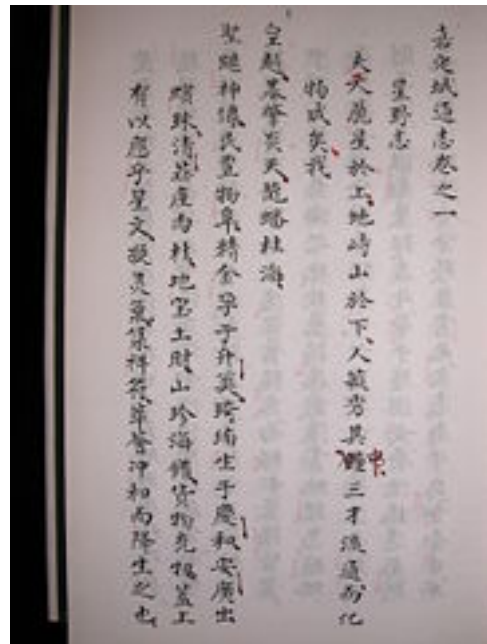 嘉定城通志卷之一
星野志
夫天麗星於上地峙山於下人藐若其中三才流通而化
物成矣我
皇越基肇炎天範蟠桂海
聖繼神傳民豊物阜精金孕于升英琦瑜生于慶和安廣出
蠙珠清葩產肉桂地宝土財山珍海錯貨物充牣蓋上
有以應乎星文凝灵氣集祥符萃詧冲和而降生之也